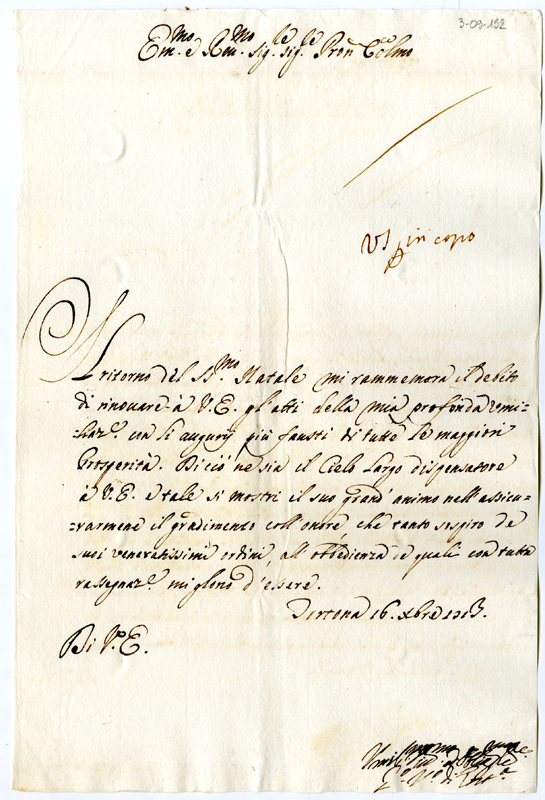 3-09-152
Em.mo e Rev.mo Sig.re Sig.re Pron Col.mo
in capo
Il ritorno del S.mo Natale mi rammemora il debito
di rinouare à V.E. gl'atti della mia profonda umi-
-liaz.e con li augurij più fausti di tutte le maggiori
Prosperità. Di ciò ne sia il Cielo largo dispensatore
à V.E. e tale si mostri il suo grand'animo nell'assicu-
-rarmene il gradimento coll'onore, che tanto sospiro de
suoi veneratissimi ordini, all'obbedienza de quali con tutta
rassegnaz.e mi glorio d'essere.
Dertona 16. Xbre 1713.
Di V.E.
Umil.mo